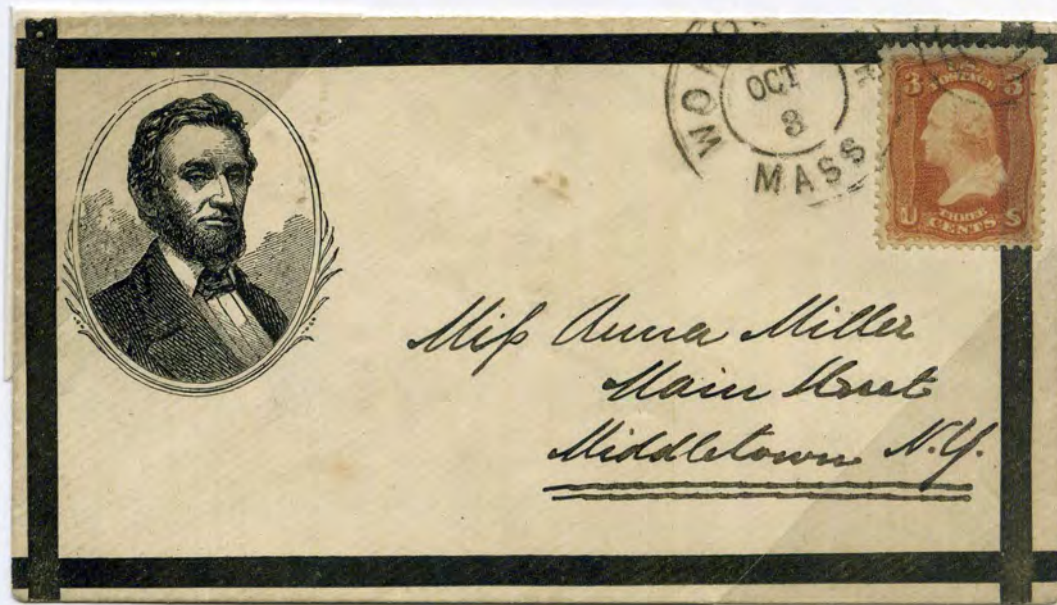 OCT
3
MASS
3 POSTAGE 3
U THREE S
CENTS
Miſs Anna Miller
Main Street
Middletown N.Y.